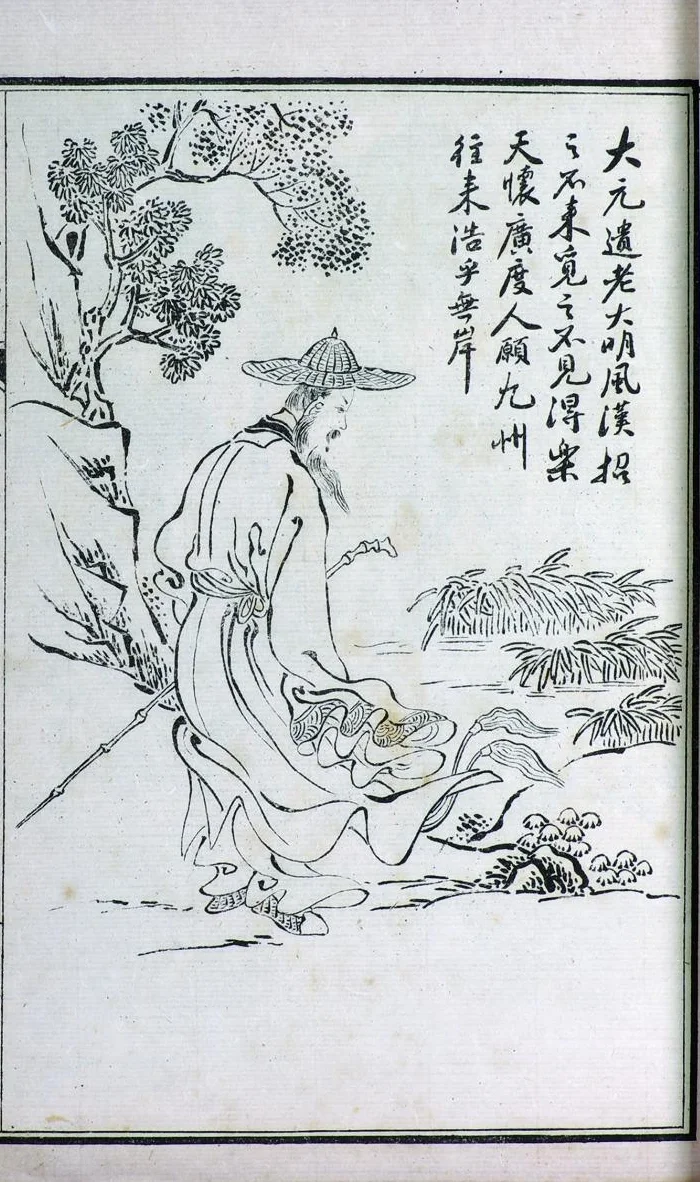 大元遺老大明風漢招
之不来覓之不見得樂
天懷廣度人願九州
往来浩乎無岸